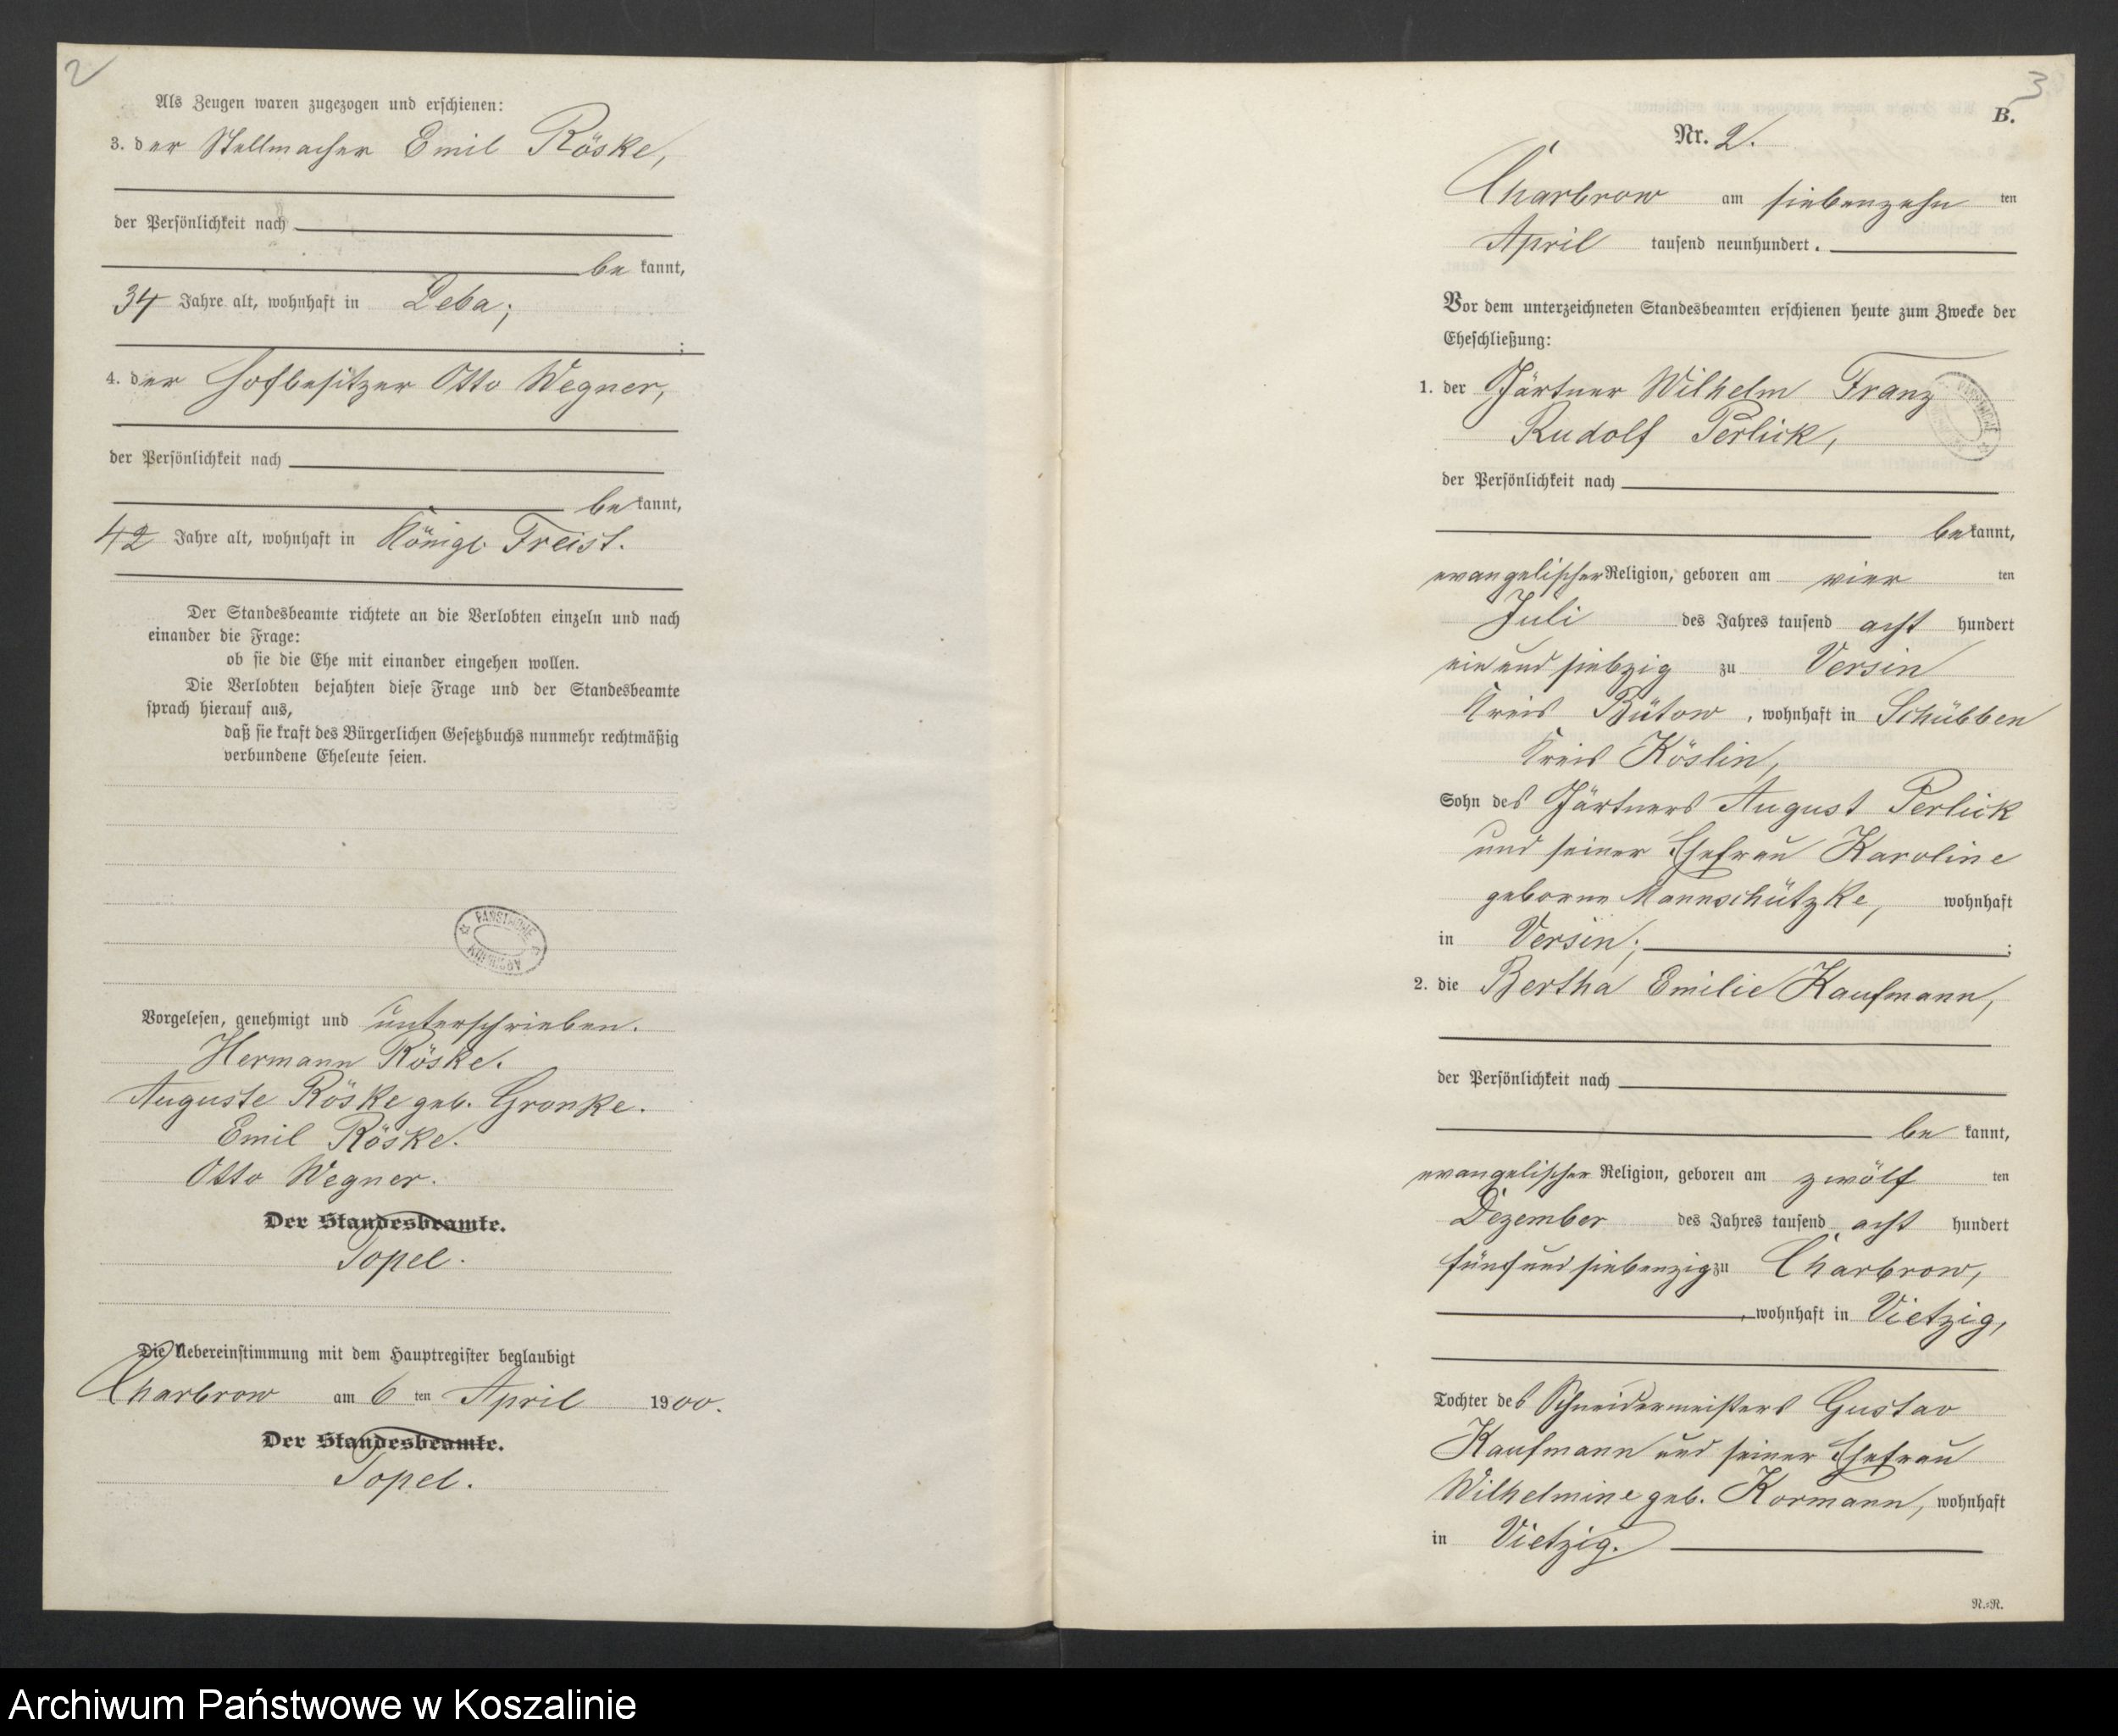 2
Als Zeugen waren zugezogen und erschienen:
3. der Stellmacher Emil Röske,
der Persönlichkeit nach
be kannt,
34 Jahre alt, wohnhaft in Leba;
;
4. der Hofbesitzer Otto Wegner,
der Persönlichkeit nach
be kannt,
42 Jahre alt, wohnhaft in Königl. Freist.
Der Standesbeamte richtete an die Verlobten einzeln und nach
einander die Frage:
ob sie die Ehe mit einander eingehen wollen.
Die Verlobten bejahten diese Frage und der Standesbeamte
sprach hierauf aus,
daß sie kraft des Bürgerlichen Gesetzbuchs nunmehr rechtmäßig
verbundene Eheleute seien.
PAŃSTWOWE ARCHIWUM
Vorgelesen, genehmigt und unterschrieben.
Hermann Röske.
Auguste Röske geb. Gronke.
Emil Röske.
Otto Wegner.
Der Standesbeamte.
Topel.
Die Uebereinstimmung mit dem Hauptregister beglaubigt
Charbrow am 6 ten April 1900.
Der Standesbeamte.
Topel.
3
B.
Nr. 2.
Charbrow am siebenzehn ten
April tausend neunhundert.
Vor dem unterzeichneten Standesbeamten erschienen heute zum Zwecke der
Eheschließung:
1. der Gärtner Wilhelm Franz
Rudolf Perlick,
der Persönlichkeit nach
be kannt,
evangelischer Religion, geboren am vier ten
Juli des Jahres tausend acht hundert
ein und siebzig zu Versin
Kreis Bütow, wohnhaft in Schübben
Kreis Köslin,
Sohn des Gärtners August Perlick
und seiner Ehefrau Karoline
geborene Mannschützke, wohnhaft
in Versin; ;
2. die Bertha Emilie Kaufmann,
der Persönlichkeit nach
be kannt,
evangelischer Religion, geboren am zwölf ten
Dezember des Jahres tausend acht hundert
fünf und siebenzig zu Charbrow,
, wohnhaft in Vietzig,
Tochter des Schneidermeisters Gustav
Kaufmann und seiner Ehefrau
Wilhelmine geb. Kormann, wohnhaft
in Vietzig.
R.=R.
Archiwum Państwowe w Koszalinie